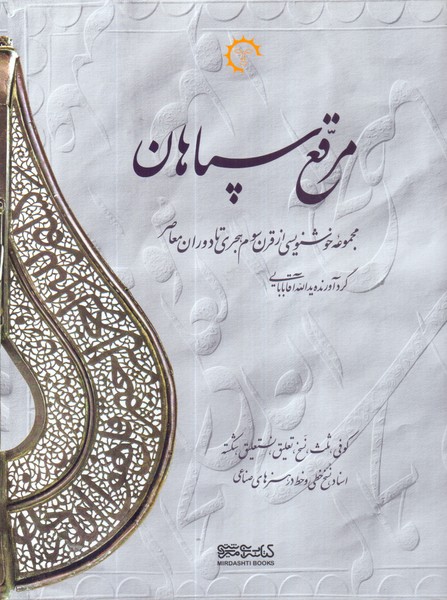 مرقع سپاهان
مجموعه خوشنویسی از قرن سوم هجری تا دوران معاصر
گردآورنده یدالله آقابابایی
کوفی، ثلث، نسخ، تعلیق، نستعلیق، شکسته
اسناد، نسخ خطی و خط در هنرهای صناعی
کتابسرای میردشتی
MIRDASHTI BOOKS